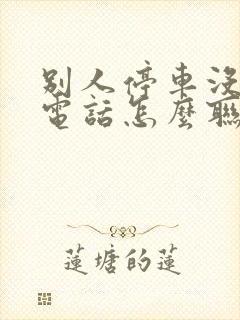 別人停車沒
電話怎麼聯
蓮塘的蓮